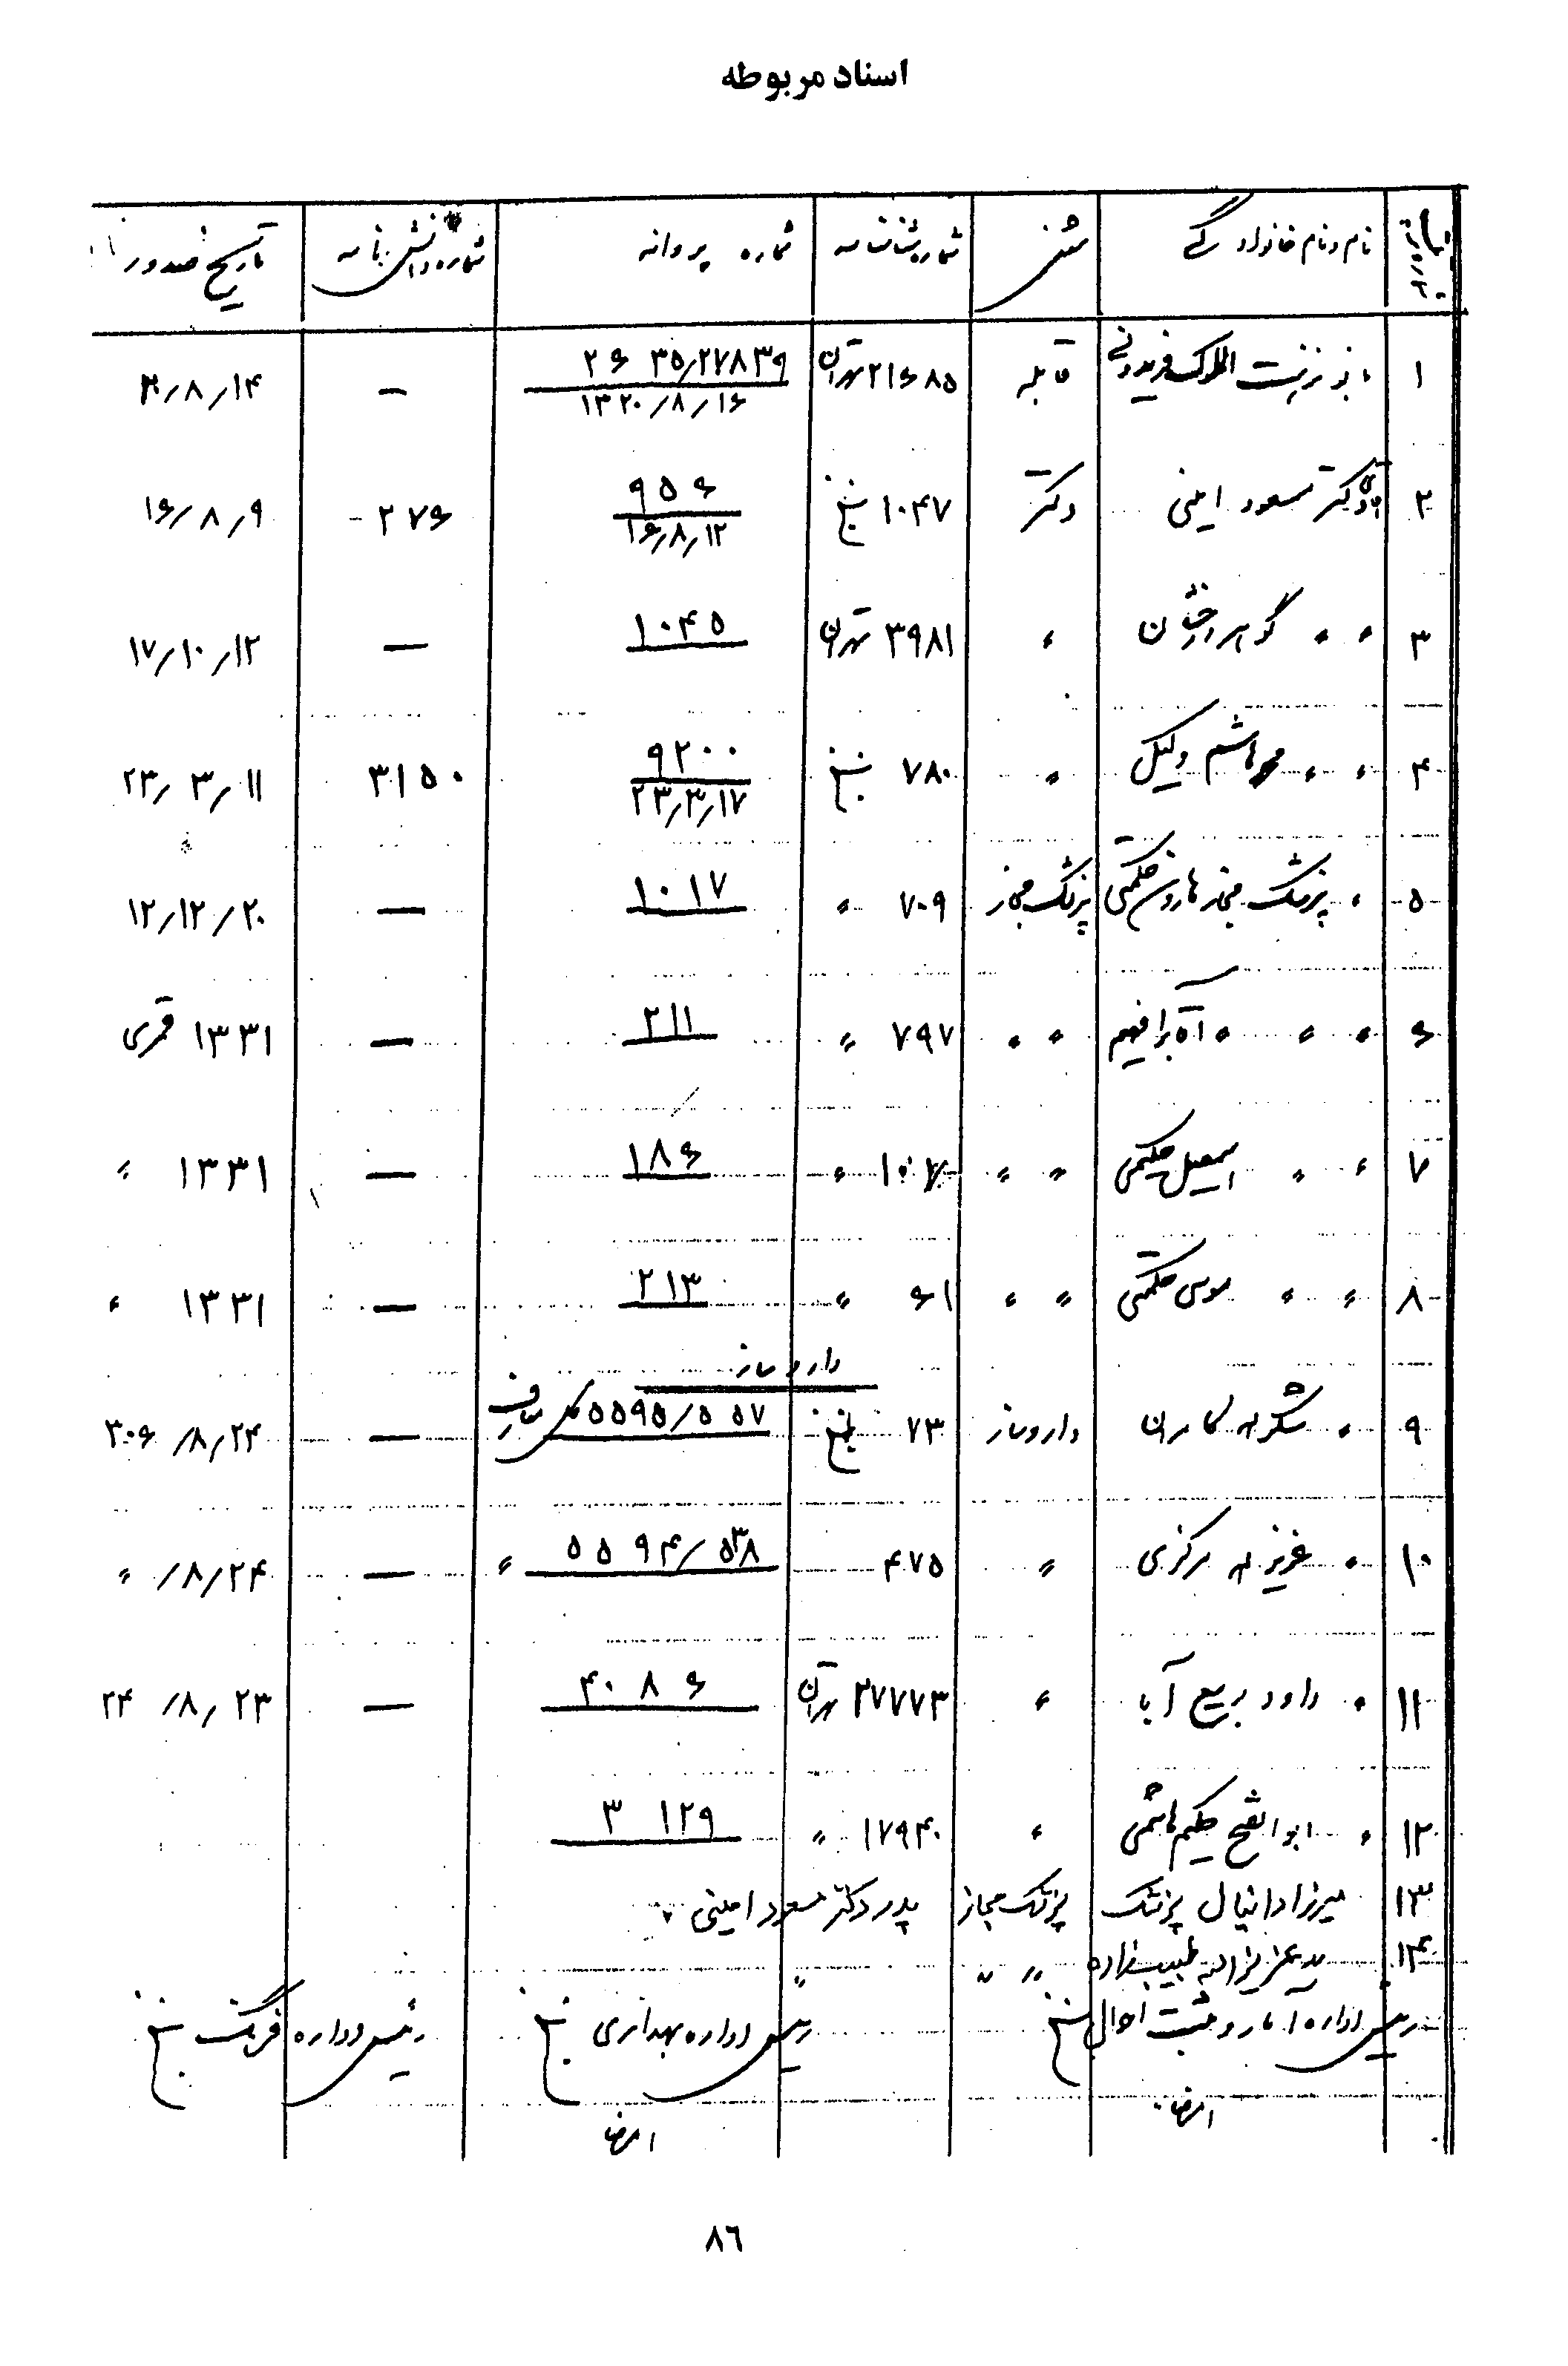 اسناد مربوطه
نام و نام خانوادگی شغل شماره شناسنامه شماره پروانه شماره دانش نامه تاریخ صدور
۱ بانو زینت الملوک فریدونی قابله ۲۱۶۸۵ تهران ۲۶ ۳۵/۲۷۸۳۹ — ۲۰/۸/۱۴
۱۳۲۰/۸/۱۶
۲ آقای دکتر مسعود امینی دکتر ۱۰۴۷ نخ ۹۵۶ ۲۷۶ ۱۶/۸/۹
۱۶/۸/۱۲
۳ " " گوهر درخشان " ۳۹۸۱ تهران ۱۰۴۵ — ۱۷/۱۰/۱۲
۴ " " هاشم وکیل " ۷۸۰ نخ ۹۲۰۰ ۳۱۵۰ ۲۳/۳/۱۱
۲۳/۳/۱۷
۵ " پزشک مجاز هارون حکمتی پزشک مجاز ۷۰۹ " ۱۰۱۷ — ۱۲/۱۲/۲۰
۶ " " " آقا ابراهیم " " ۷۹۷ " ۲۱۱ — ۱۳۳۱ قمری
۷ " " اسمعیل حکیمی " " " ۱۸۶ — ۱۳۳۱ "
۸ " " موسی حکمتی " " ۶۱ " ۲۱۳ — ۱۳۳۱ "
داروساز
۹ " شکراله کامران داروساز ۷۳ نخ ۵۵۹۵/۵۵۷ معارف — ۳۰۶/۸/۲۴
۱۰ " عزیزاله مرکزی " ۴۷۵ ۵۵۹۴/۵۳۸ " — ۸/۲۴/ "
۱۱ " داود ربیع آبا " ۳۷۷۷۳ تهران ۴۰۸۶ — ۲۴/۸/۲۳
۱۲ " ابوالفتح حکیم هاشمی " ۱۷۹۴۰ " ۳۱۲۹
۱۳ میرزا دانیال پزشک پزشک مجاز پدر دکتر مسعود امینی
۱۴ عزیزاله طبیب زاده " " "
رئیس اداره آمار و ثبت احوال نخ رئیس اداره بهداری نخ رئیس اداره فرهنگ نخ
امضاء امضا
۸۶